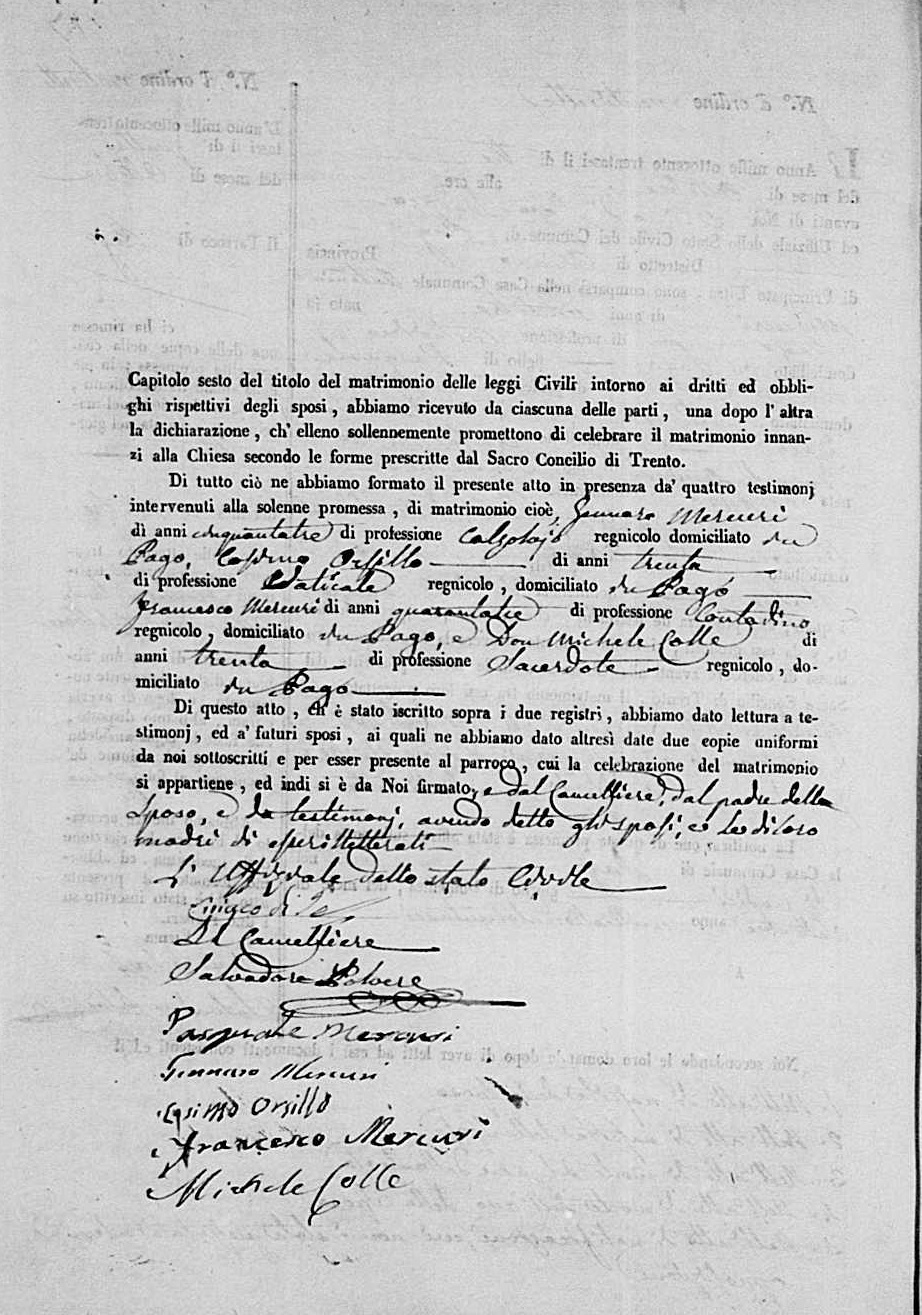 Capitolo sesto del titolo del matrimonio delle leggi Civili intorno ai dritti ed obbli-
ghi rispettivi degli sposi, abbiamo ricevuto da ciascuna delle parti, una dopo l'altra
la dichiarazione, ch'elleno sollennemente promettono di celebrare il matrimonio innan-
zi alla Chiesa secondo le forme prescritte dal Sacro Concilio di Trento.
Di tutto ciò ne abbiamo formato il presente atto in presenza da' quattro testimonj
intervenuti alla solenne promessa, di matrimonio cioè, Gennaro Mercuri
di anni cinquantatre di professione Calzolajo regnicolo domiciliato in
Pago, Cosimo Orsillo di anni trenta
di professione regnicolo, domiciliato in Pago
Francesco Mercuri di anni quarantatre di professione Contadino
regnicolo, domiciliato in Pago, e Don Michele Colle di
anni trenta di professione Sacerdote regnicolo, do-
miciliato in Pago
Di questo atto, ch'è stato iscritto sopra i due registri, abbiamo dato lettura a te-
stimonj, ed a' futuri sposi, ai quali ne abbiamo dato altresì date due copie uniformi
da noi sottoscritti e per esser presente al parroco, cui la celebrazione del matrimonio
si appartiene, ed indi si è da Noi firmato, e dal Cancelliere, dal padre dello
sposo, e da testimonj, avendo detto gli sposi, e le di loro
madri di essere illetterati
L'Uffiziale dello stato Civile
Il Cancelliere
Salvadore Polvere
Pasquale Mercuri
Gennaro Mercuri
Cosimo Orsillo
Francesco Mercuri
Michele Colle